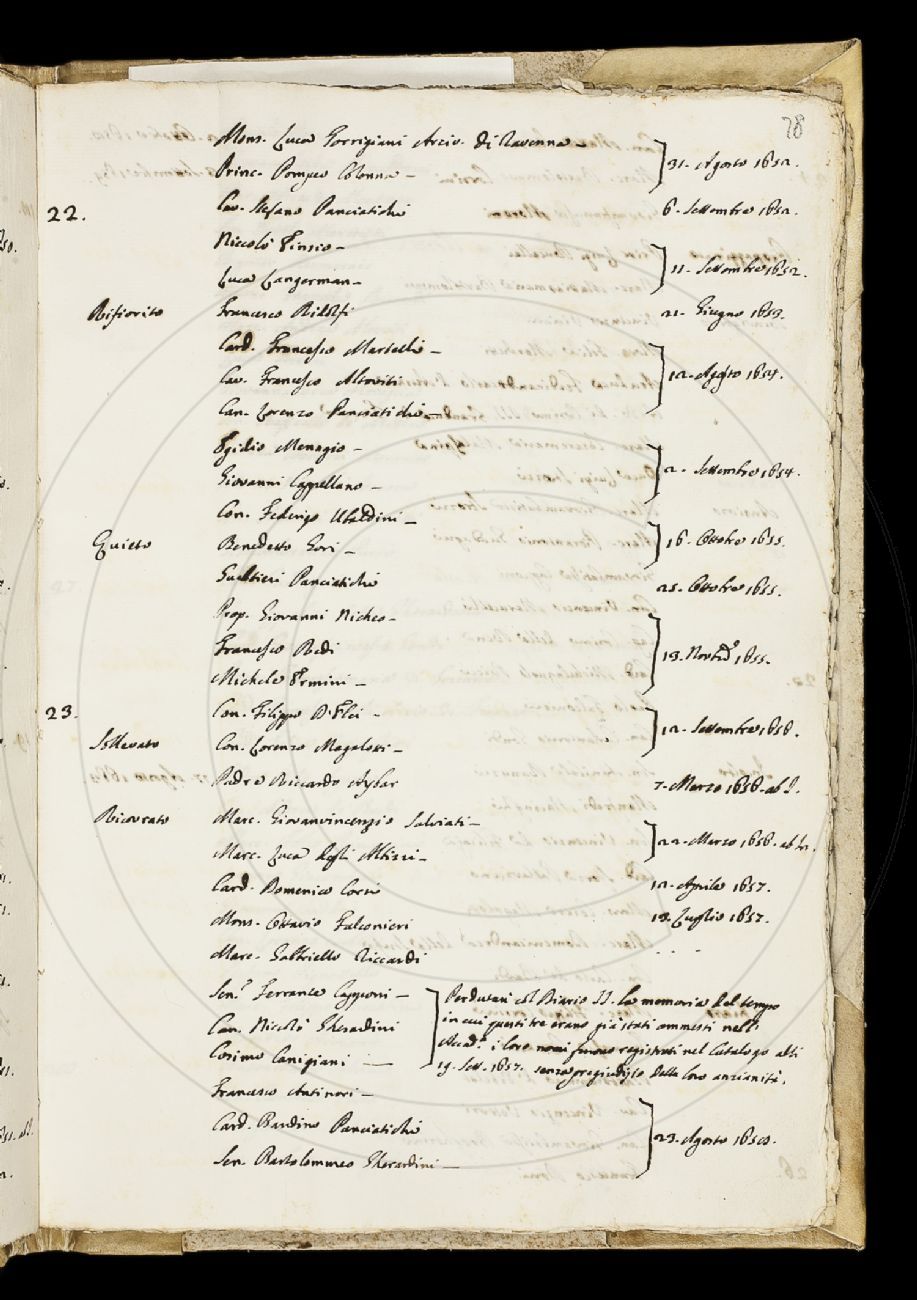 78
Mons. Luca Torrigiani Arciv. di Ravenna
Princ. Pompeo Colonna 31. Agosto 1652.
22. Cav. Stefano Panciatichi 6. Settembre 1652.
Niccolò Einsio
Luca Langerman 11. Settembre 1652.
Rifiorito Francesco Ridolfi 21. Giugno 1653.
Card. Francesco Martelli
Cav. Francesco Altoviti 12. Agosto 1654.
Can. Lorenzo Panciatichi
Egidio Menagio
Giovanni Cappellano 2. Settembre 1654.
Con. Federigo Ubaldini
Quieto Benedetto Gori 16. Ottobre 1655.
Gualtieri Panciatichi 25. Ottobre 1655.
Prop. Giovanni
Francesco Redi 13. Novbre 1655.
Michele Ermini
23. Con. Filippo D'Elci
Sollevato Con. Lorenzo Magalotti 12. Settembre 1656.
Padre Riccardo 7. Marzo 1656. ab I.
Ricovrato Marc. Giovanvincenzio Salviati
Marc. Luca degli Albizzi 22. Marzo 1656. ab In.
Card. Domenico Corsi 12. Aprile 1657.
Mons. Ottavio Falconieri 19. Luglio 1657.
Marc. Gabbriello Riccardi . . .
Sen. Ferrante Capponi Perdutasi col Diario II. la memoria del tempo
Can. Niccolò Gherardini in cui questi tre erano già stati ammessi nell'
Accad. i loro nomi furono registrati nel Catalogo alli
Cosimo Canigiani 19. Sett. 1657. senza pregiudizio della loro anzianità.
Francesco Antinori
Card. Bandino Panciatichi 23. Agosto 1658.
Sen. Bartolommeo Gherardini